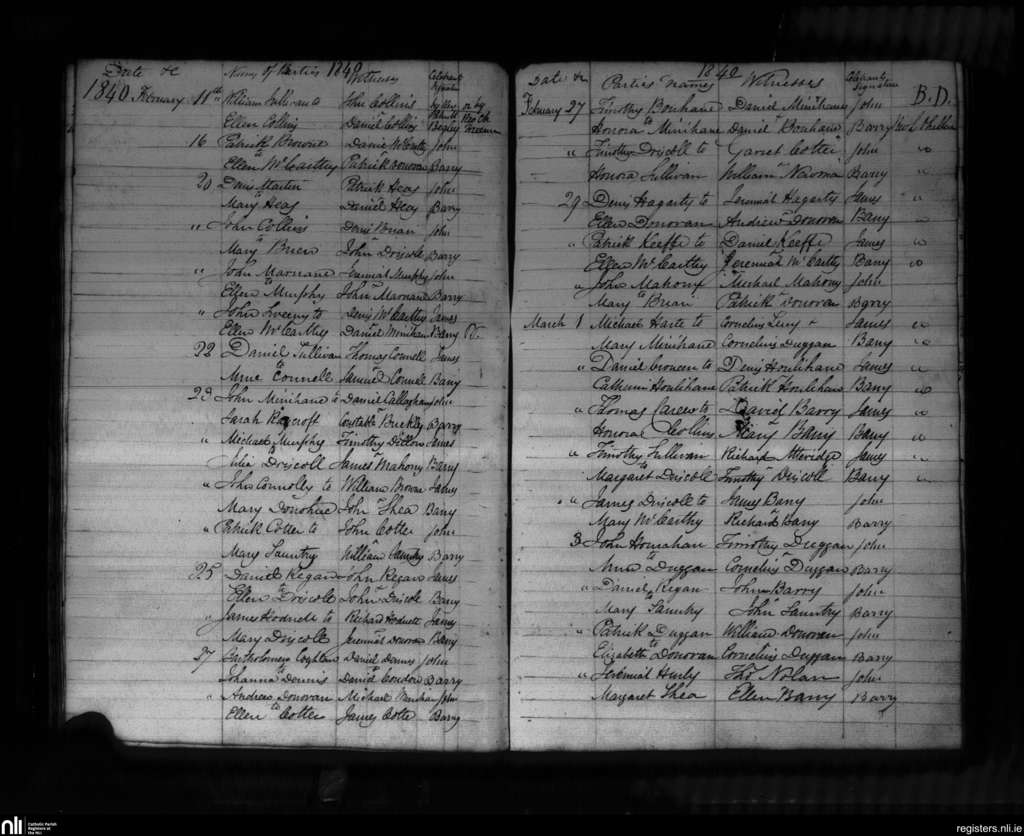 Date &c Names of Parties 1840 Witness Celebrant
1840 February 11th William Sullivan to John Collins
Ellen Collins Daniel Collins
16 Patrick Browne Daniel McCarthy John
to Ellen McCarthy Patrick Donovan Barry
20 Denis Marten Patrick Heas John
Mary Heas Daniel Heas Barry
" John Collins Denis Brian John
Mary Brien John Driscoll Barry
" John Marnane Jeremiah Murphy John
Ellen Murphy John Marnane Barry
" John Sweeny to Denis McCarthy James
Ellen McCarthy Daniel Minihane Barry
22 Daniel Sullivan Thomas Connell James
to Anne Connell Samuel Connell Barry
23 John Minihane to Daniel Callaghan John
Sarah Constable Buckley Barry
" Michael Murphy Timothy Dillon James
to Julia Driscoll James Mahony Barry
" John Connolly to William Browne James
Mary Donohue John Shea Barry
" Patrick Cotter to John Cotter John
Mary Sauntry William Sauntry Barry
25 Daniel Regan John Regan James
to Ellen Driscoll John Driscoll Barry
" James Hodnett to Richard Hodnett James
Mary Driscoll Jeremiah Donovan Barry
27 Bartholomew Coghlan Daniel Dennis John
to Johanna Dennis David Condon Barry
" Andrew Donovan Michael John
to Ellen Cotter James Cotter Barry
1840
Date &c Parties names Witnesses Celebrants Signature B.D.
February 27 Timothy Bonhane Daniel Minihane John
to Honora Minihane Daniel Bonhane Barry
" Timothy Driscoll to Garret Cotter John "
Honora Sullivan William Barry "
29 Denis Hagarty to Jeremiah Hagarty James "
Ellen Donovan Andrew Donovan Barry "
" Patrick Keeffe to Daniel Keeffe James "
Ellen McCarthy Jeremiah McCarthy Barry "
" John Mahony Michael Mahony John
to Mary Brian Patrick Donovan Barry
March 1 Michael Harte to Cornelius James "
Mary Minihane Cornelius Duggan Barry "
" Daniel to Denis Houlihane James "
Houlihane Patrick Houlihane Barry "
" Thomas Carew to David Barry James "
Honora Collins Mary Barry Barry "
" Timothy Sullivan Richard Atteridge James "
to Margaret Driscole Timothy Driscoll Barry "
" James Driscole to James Barry John
Mary McCarthy Richard Barry Barry
3 John Hournahan Timothy Duggan John
to Anne Duggan Cornelius Duggan Barry
" Daniel Regan John Barry John
to Mary Sauntry John Sauntry Barry
" Patrick Duggan William Donovan John
to Elizabeth Donovan Cornelius Duggan Barry
" Jeremiah Hurly Thos Nolan John
Margaret Shea Ellen Barry Barry
nli Catholic Parish Registers at the NLI
registers.nli.ie